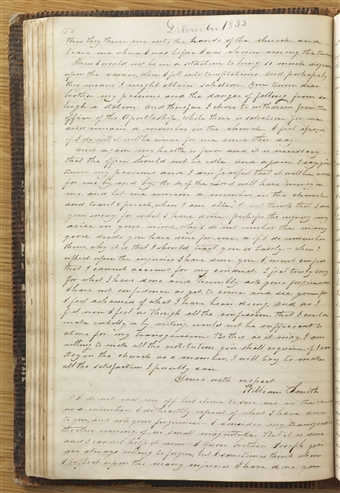 76 December 1835
then they turn me into the hands of the church, and
leave me where I was before I was chosen among the twelve
then I would not be in a situation to bring so much disgrace
upon the cause, when I fell into temptation, and perhaps by
this means I might obtain salvation. You know dear
brother my passions and the danger of falling from so
high a station, and therefore I chose to withdraw from the
office of the Apostleship, while there is salvation for me
and remain a member in the church. I feel afraid
if I do not it will be worse for me some other day.
and again my health is poor and it is necessary
that the office should not be idle. and again I say you
know my passions and I am fearful that it will be worse
for me by and by. do so if the Lord will have mercy on
me and let me remain a member in the church
and travel & preach when I am able, do not think that I am
your enemy for what I have done, perhaps this inquiry may
arise in your mind, why I do not remember the many
good deeds you have done for me, or if I do remember
them, why it is that I should treat you so basely, when I
reflect upon the injuries I have done you I must confess
that I cannot account for my conduct. I feel truly sorry
for what I have done and humbly ask your forgiveness
I have not confidence as yet to come and see you for
I feel ashamed of what I have been doing, and as I
feel now I feel as though all the confession that I could
make verbally or by writing would not be sufficient to
atone for my transgression. Be this as it may, I am
willing to make all the restitution you shall require, if I can
stay in the church as a member, I will try to make
all the satisfaction I possibly can
Yours with respect
William Smith
do not cast me off but strive to save me in the church
as a member I do heartily repent of what I have done
to you and ask your forgiveness I consider my transgression
the other evening of no small magnitude. But it is done
and I cannot help it now I know brother Joseph you
are always willing to forgive, but I sometimes think when
I reflect upon the many injuries I have done you